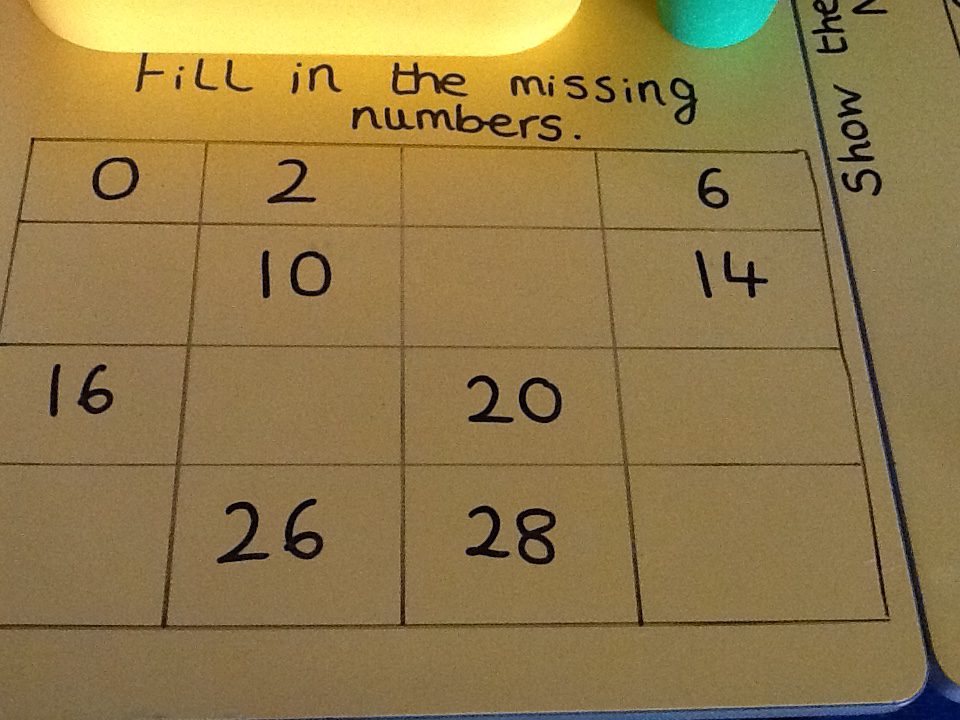 Fill in the missing
numbers.
0 2 6
10 14
16 20
26 28
Show the